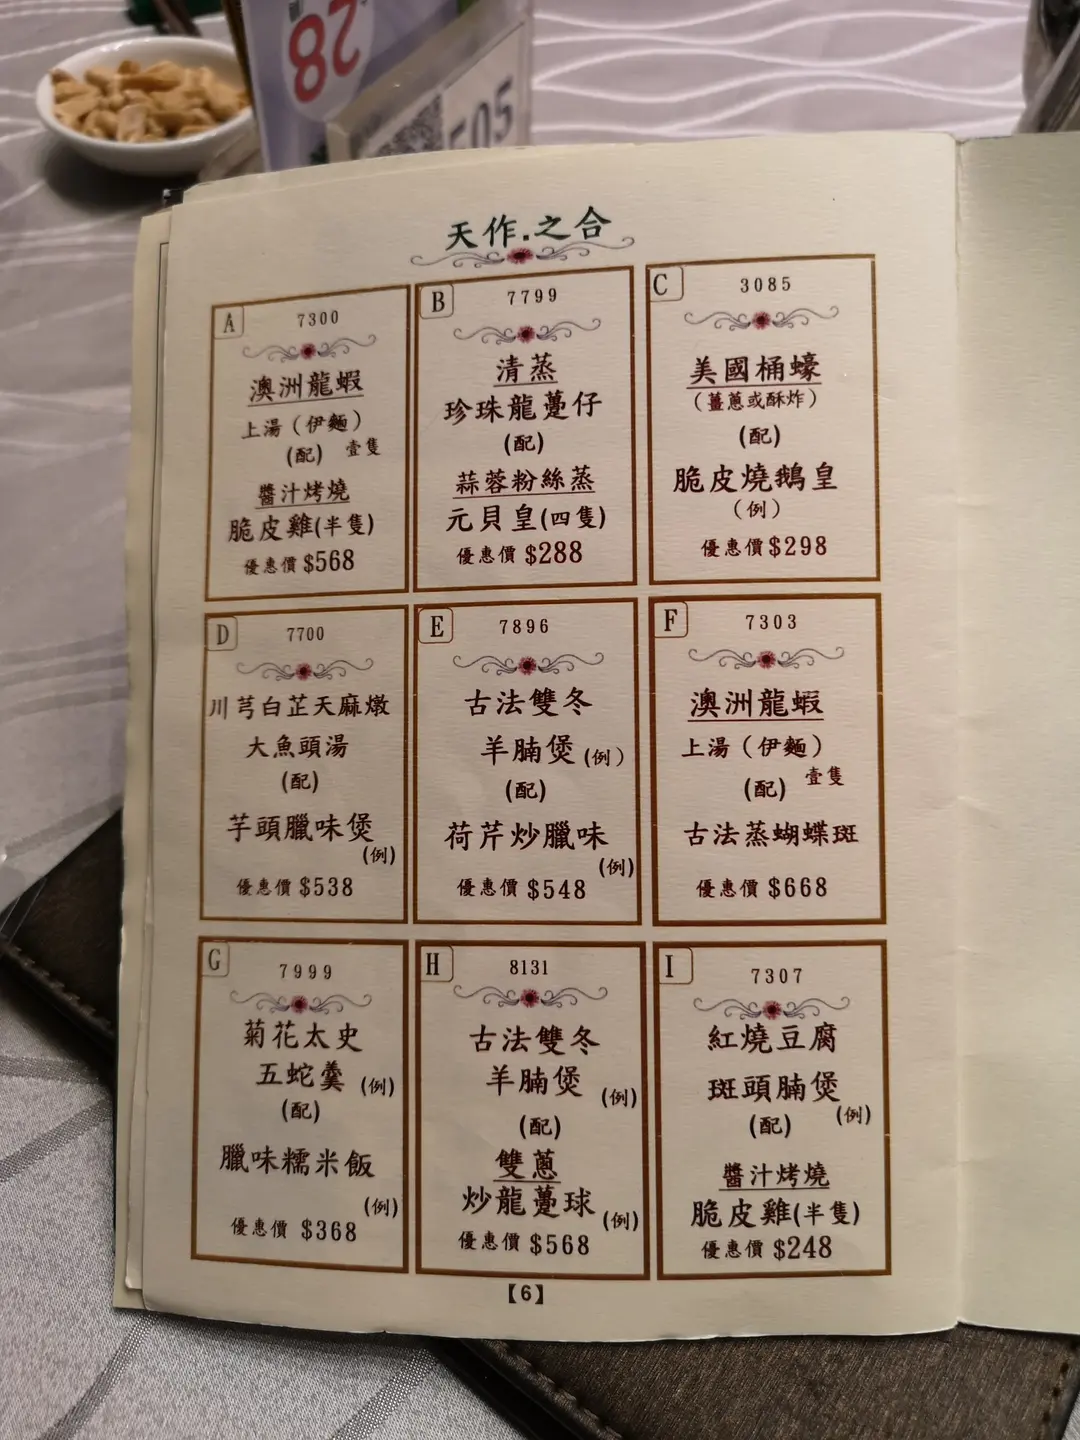 28
505
天作.之合
A
7300
澳洲龍蝦
上湯（伊麵）
(配) 壹隻
醬汁烤燒
脆皮雞(半隻)
優惠價 $568
B
7799
清蒸
珍珠龍躉仔
(配)
蒜蓉粉絲蒸
元貝皇(四隻)
優惠價 $288
C
3085
美國桶蠔
（薑蔥或酥炸）
(配)
脆皮燒鵝皇
（例）
優惠價 $298
D
7700
川芎白芷天麻燉
大魚頭湯
(配)
芋頭臘味煲
(例)
優惠價 $538
E
7896
古法雙冬
羊腩煲 (例)
(配)
荷芹炒臘味
(例)
優惠價 $548
F
7303
澳洲龍蝦
上湯（伊麵）
(配) 壹隻
古法蒸蝴蝶斑
優惠價 $668
G
7999
菊花太史
五蛇羹 (例)
(配)
臘味糯米飯
(例)
優惠價 $368
H
8131
古法雙冬
羊腩煲 (例)
(配)
雙蔥
炒龍躉球 (例)
優惠價 $568
I
7307
紅燒豆腐
斑頭腩煲
(配) (例)
醬汁烤燒
脆皮雞(半隻)
優惠價 $248
【6】